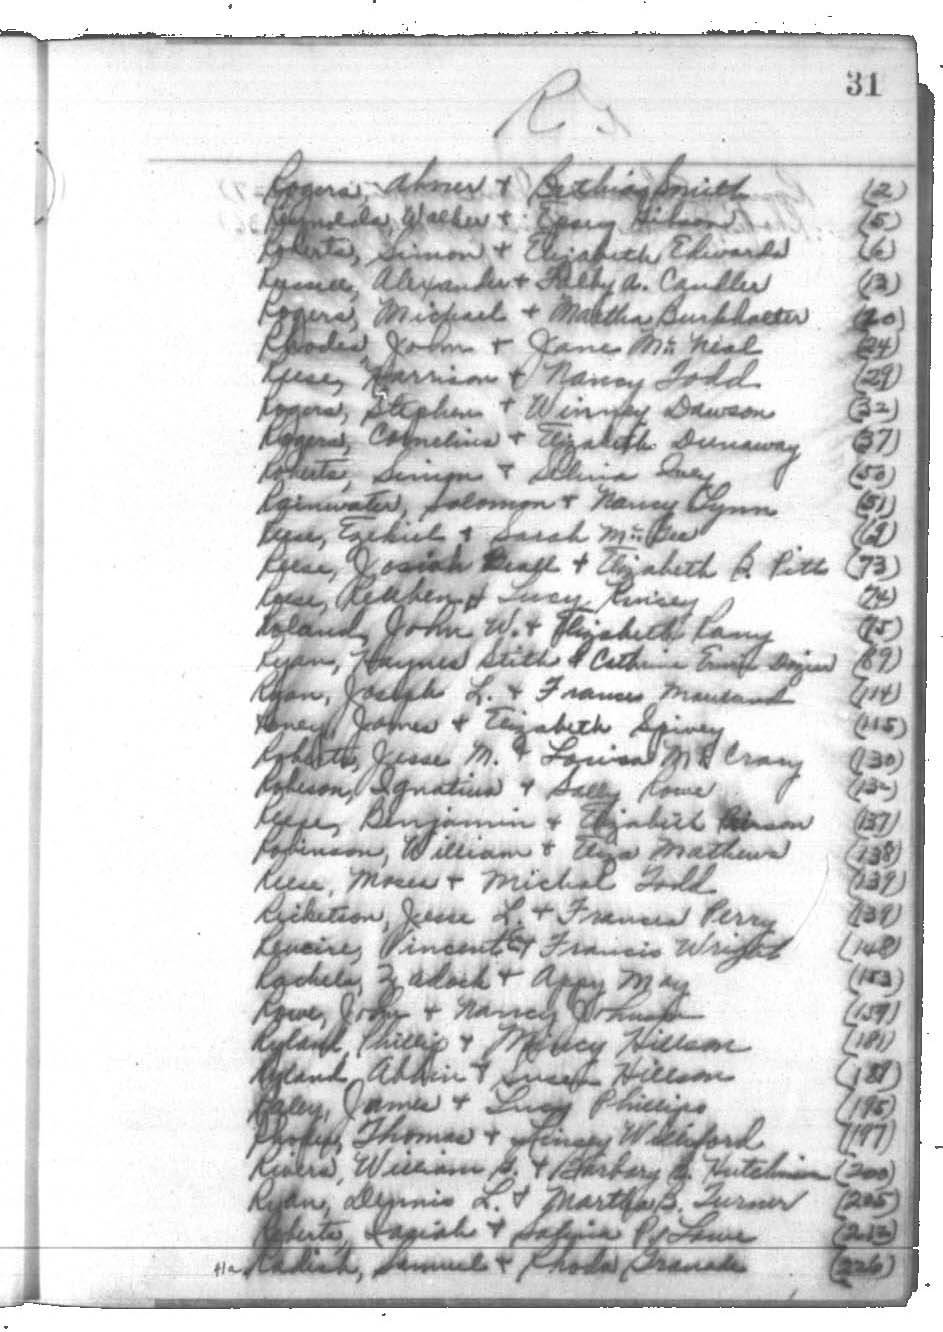 31
R's
Rogers, Abner & Bethiny Smith (2)
Reynolds, Walker & Gibson (5)
Roberts, Simon & Elizabeth Edwards (6)
Russell, Alexander & A. Candler (12)
Rogers, Michael & Martha Burkhalter (20)
Rhodes, John & Jane Mc Neal (24)
Reese, Harrison & Nancy Todd (29)
Rogers, Stephen & Winney Dawson (32)
Rogers, Cornelius & Elizabeth Dunaway (37)
Roberts, Simon & Selina Ivey (50)
Rainwater, Solomon & Nancy Lynn (51)
Reese, Ezekiel & Sarah Mc Gee
Reese, Josiah Beall & Elizabeth B. Pitts (73)
Rose, Reuben & Lucy Kinsey (74)
Ryland, John W. & Elizabeth Rany (75)
Ryan, Haynes Stith & Cathrine Dozier (89)
Ryan, Joseph L. & Frances (114)
Roney, James & Elizabeth Spivey (115)
Roberts, Jesse M. & Louisa Mc Crary (130)
Robeson, Ignatius & Sally Rowe (132)
Reese, Benjamin & Elizabeth (137)
Robinson, William & Eliza Mathews (138)
Reese, Moses & Michal Todd (139)
Ricketson, Jesse L. & Frances Perry (139)
Vincent & Francis Wright (148)
Rachels, Zadock & Appy May (153)
Rowe, John & Nancy Johnson (159)
Ryland, Phillip & Mincy Hillson (181)
Ryland, & Susan Hillson (181)
Raley, James & Lucy Phillips (195)
Rhodes, Thomas & Linsey Williford (197)
Rivers, William & Barbary Hutchinson (200)
Ryan, Dennis L. & Martha B. Turner (205)
Roberts, & P. Lowe (212)
Radish, Samuel & Rhoda Granade (226)